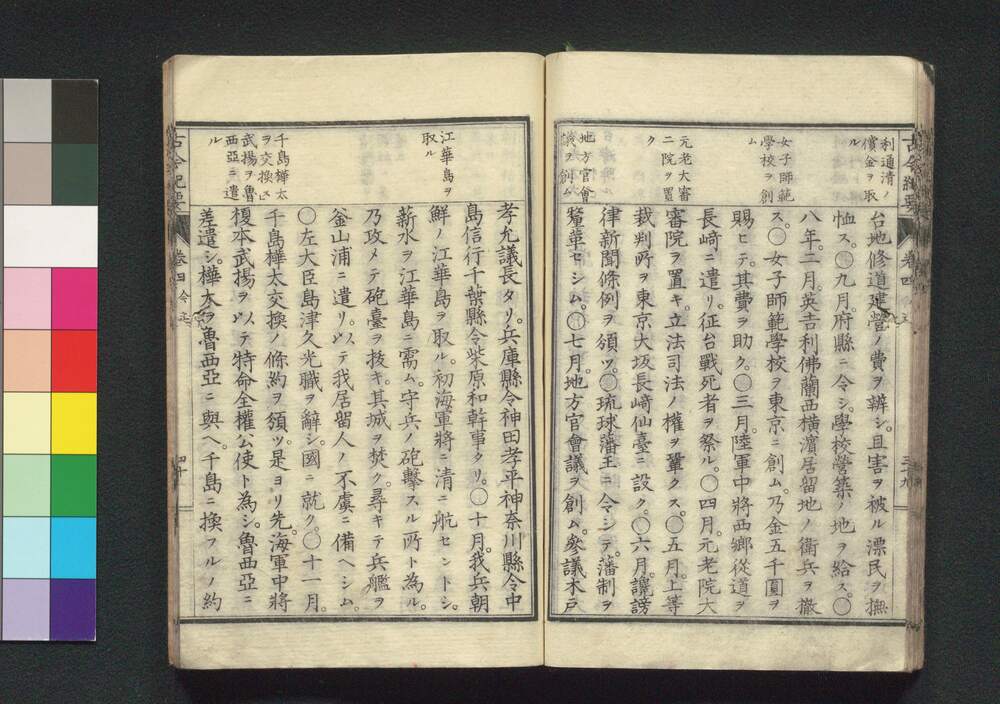 利通清ノ
償金ヲ取
ル
女子師範
學校ヲ創
ム
元老大審
二院ヲ置
ク
地方官會
議ヲ創ム
台地修道建營ノ費ヲ辨シ。且害ヲ被ル漂民ヲ撫
恤ス。〇九月。府縣ニ令シ。學校營築ノ地ヲ給ス。〇
八年。二月。英吉利佛蘭西橫濱居留地ノ衛兵ヲ撤
ス。〇女子師範學校ヲ東京ニ創ム。乃金五千圓ヲ
賜ヒテ。其費ヲ助ク。〇三月。陸軍中將西鄉從道ヲ
長崎ニ遣リ。征台戰死者ヲ祭ル。〇四月。元老院大
審院ヲ置キ。立法司法ノ權ヲ鞏クス。〇五月。上等
裁判所ヲ東京大坂長崎仙臺ニ設ク。〇六月。讒謗
律新聞條例ヲ頒ツ。〇琉球藩王ニ令シテ。藩制ヲ
釐革セシム。〇七月。地方官會議ヲ創ム。參議木戶
古今紀要 卷四 今上 三十九
江華島ヲ
取ル
千島樺太
ヲ交換シ
武揚ヲ魯
西亞ニ遣
ル
孝允議長タリ。兵庫縣令神田孝平神奈川縣令中
島信行千葉縣令柴原和幹事タリ。〇十月。我兵朝
鮮ノ江華島ヲ取ル。初海軍將ニ清ニ航セントシ。
薪水ヲ江華島ニ需ム。守兵ノ砲擊スル所ト為ル。
乃攻メテ砲臺ヲ拔キ。其城ヲ焚ク。尋キテ兵艦ヲ
釜山浦ニ遣リ。以テ我居留人ノ不虞ニ備ヘシム。
〇左大臣島津久光職ヲ辭シ。國ニ就ク。〇十一月。
千島樺太交換ノ條約ヲ頒ツ。是ヨリ先。海軍中將
榎本武揚ヲ以テ特命全權公使ト為シ。魯西亞ニ
差遣シ。樺太ヲ魯西亞ニ與ヘ。千島ニ換フルノ約
古今紀要 卷四 今上 四十